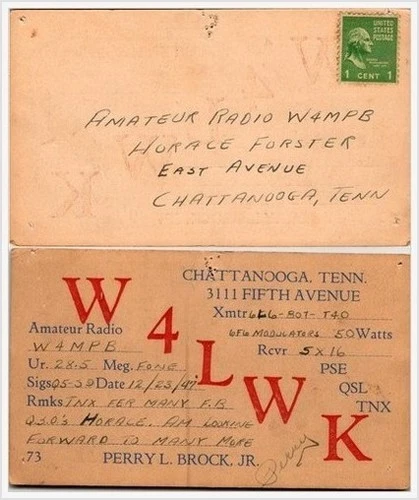 UNITED
STATES
POSTAGE
1 CENT 1
AMATEUR RADIO W4MPB
HORACE FORSTER
EAST AVENUE
CHATTANOOGA, TENN
W4LWK
CHATTANOOGA, TENN.
3111 FIFTH AVENUE
Xmtr 6L6-807-T40
6F6 MODULATORS 50 Watts
Amateur Radio
W4MPB
Rcvr 5X16
Ur. 28.5 Meg. FONE
PSE
Sigs Q5-S9 Date 12/23/47
QSL
Rmks TNX FER MANY F.B
TNX
QSO'S HORACE. AM LOOKING
FORWARD TO MANY MORE
.73 PERRY L. BROCK, JR.
Perry